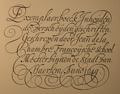 Exemplaer-boeck, Inhouden
de Verscheyden geschriften
Geschreven door Jean de la
Chambre Françoysche School
Meester binnen de Stadt van
Haerlem, Anno